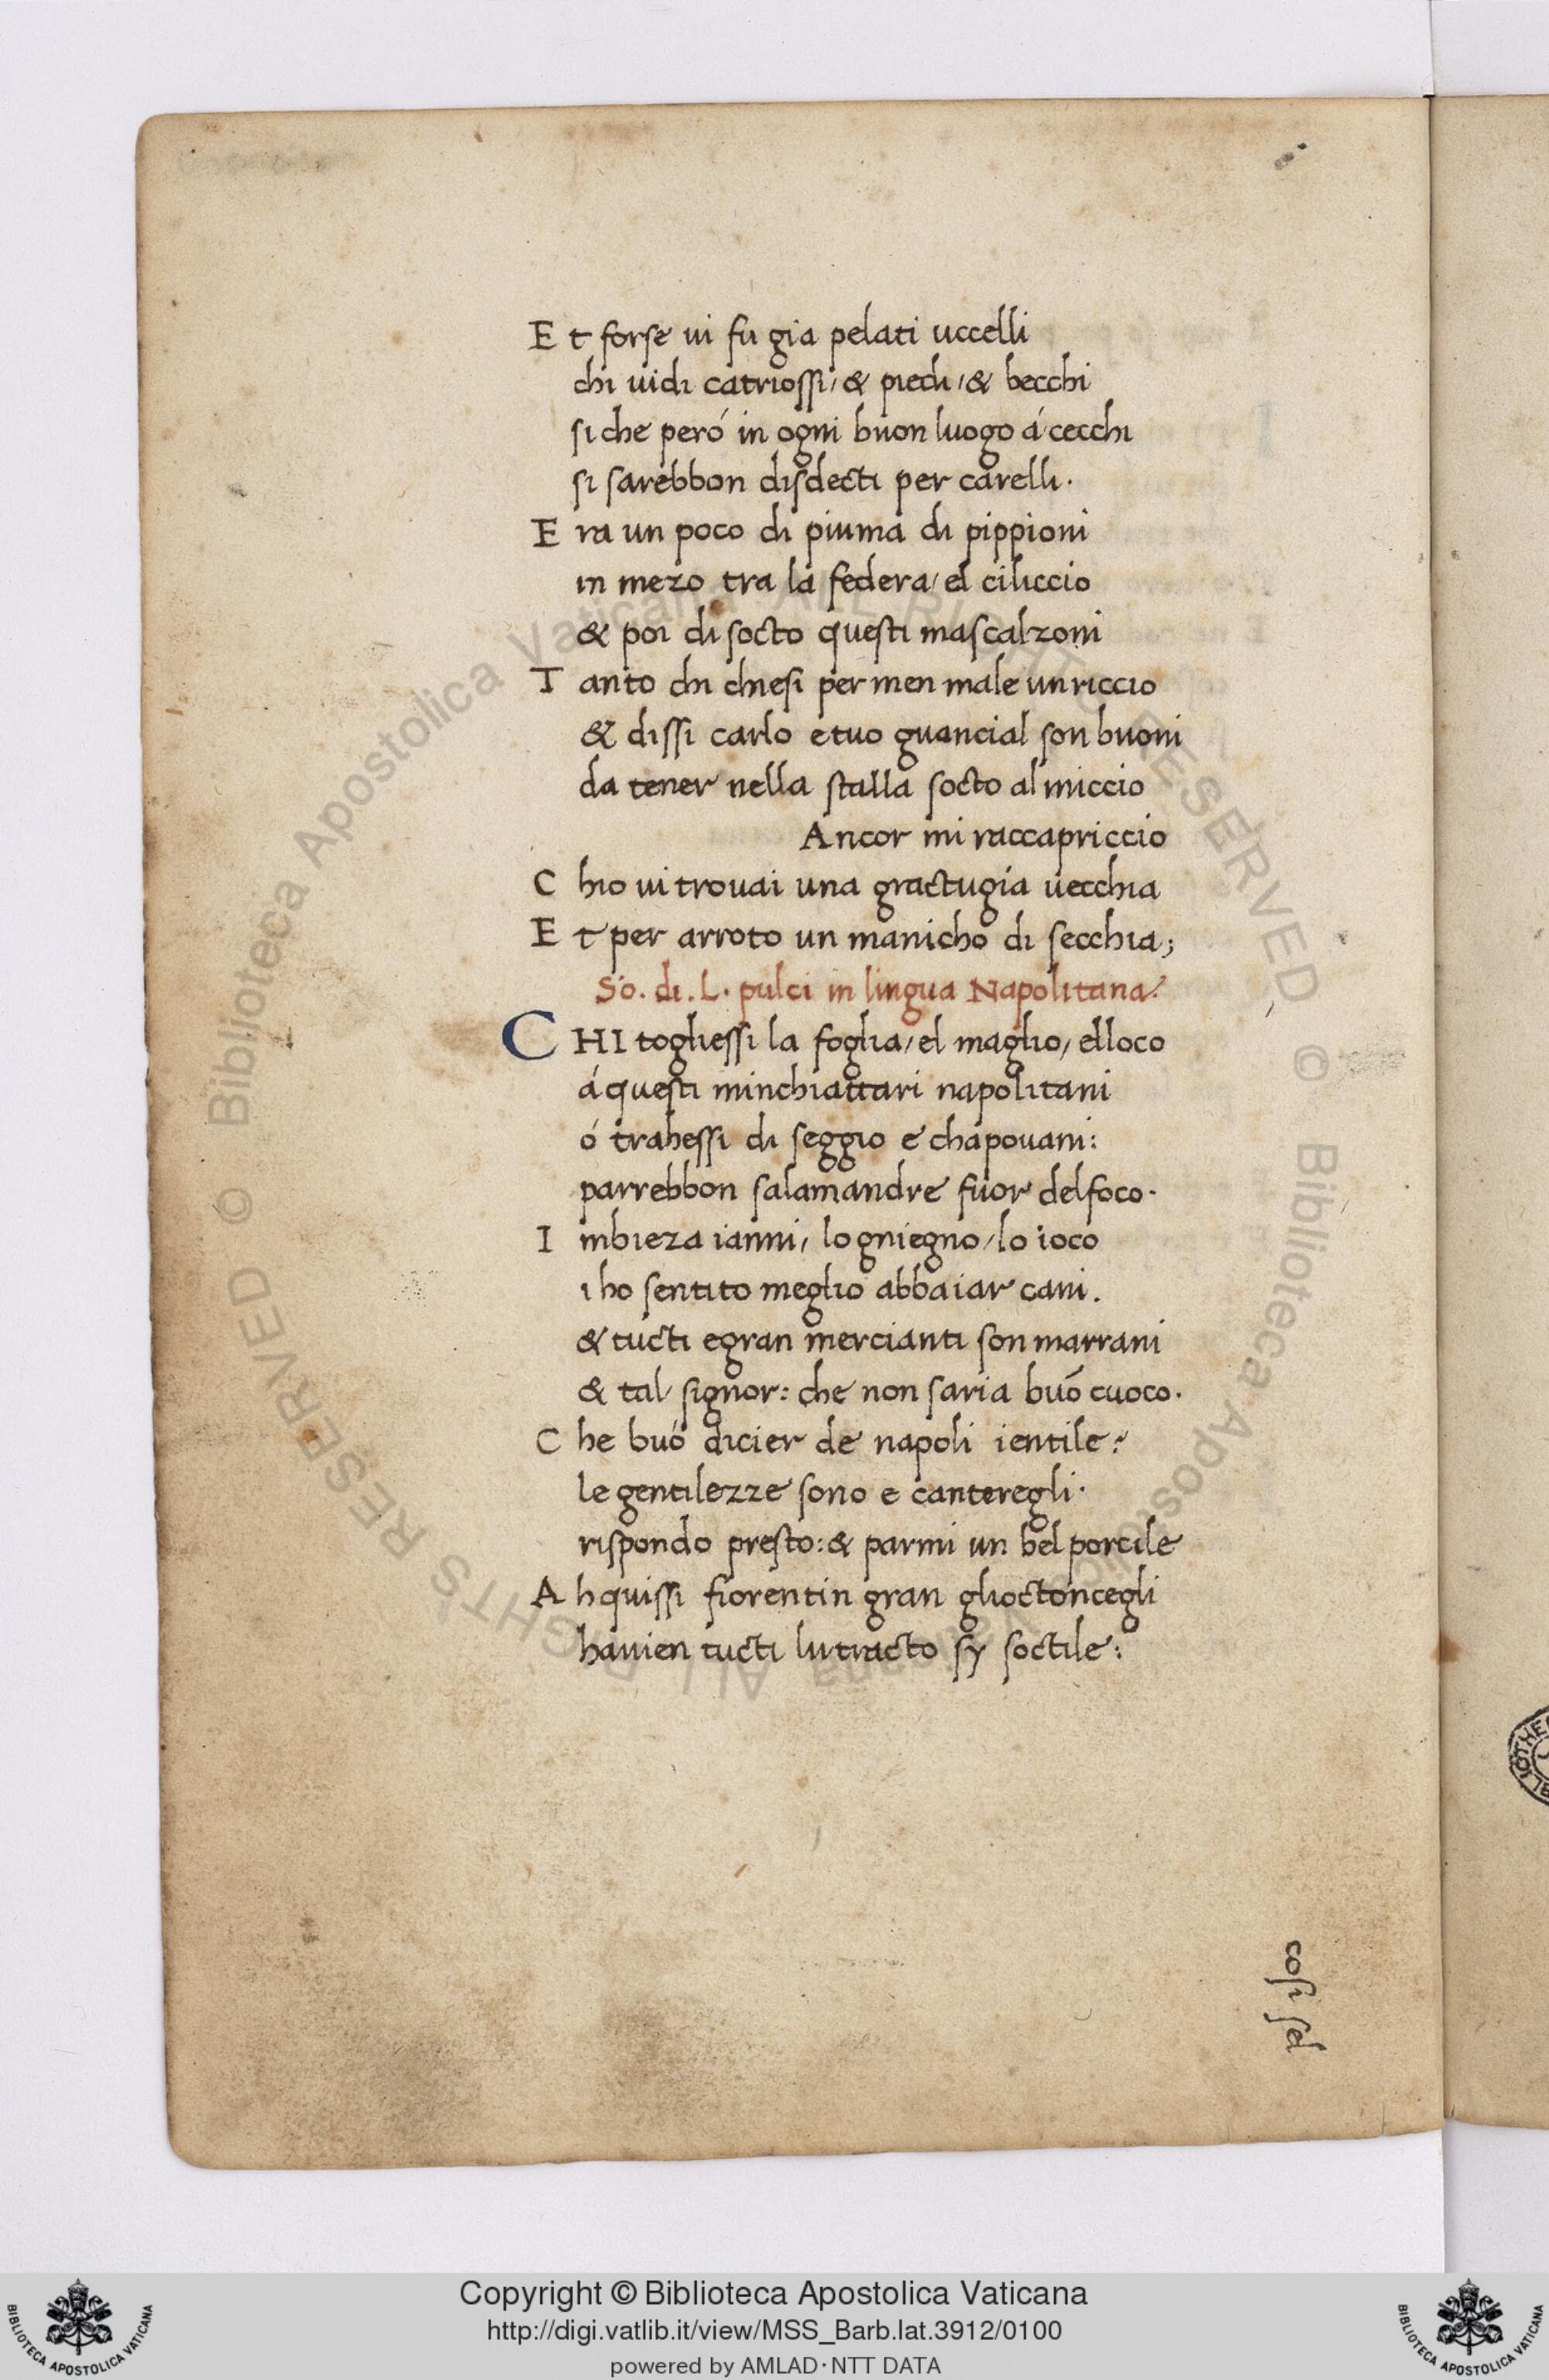 Et forse ui fu gia pelati uccelli
chi uidi catriossi / & piedi / & becchi
si che peró in ogni buon luogo á cecchi
si sarebbon disdecti per carelli.
Era un poco di piuma di pippioni
in mezo tra la federa / el ciliccio
& poi di socto questi mascalzoni
Tanto chi chiesi per men male un riccio
& dissi carlo e tuo guancial son buoni
da tener nella stalla socto al miccio
Ancor mi raccapriccio
Chio ui trouai una gractugia uecchia
Et per arroto un manicho di secchia;
So. di. L. pulci in lingua Napolitana.
CHI togliessi la foglia / el maglio / elloco
á questi minchiattari napolitani
ó trahessi di seggio e chapouani:
parrebbon salamandre fuor del foco.
Imbieza ianni / lo gniegno / lo ioco
i ho sentito meglio abbaiar cani.
& tucti e gran mercianti son marrani
& tal signor: che non saria buó cuoco.
Che buó dicier de napoli ientile?
le gentilezze sono e canteregli.
rispondo presto: & parmi un bel porcile
Ah quissi fiorentin gran glioctoncegli
hauien tucti lu tracto sy soctile:
cosi sel
Copyright © Biblioteca Apostolica Vaticana
http://digi.vatlib.it/view/MSS_Barb.lat.3912/0100
powered by AMLAD·NTT DATA